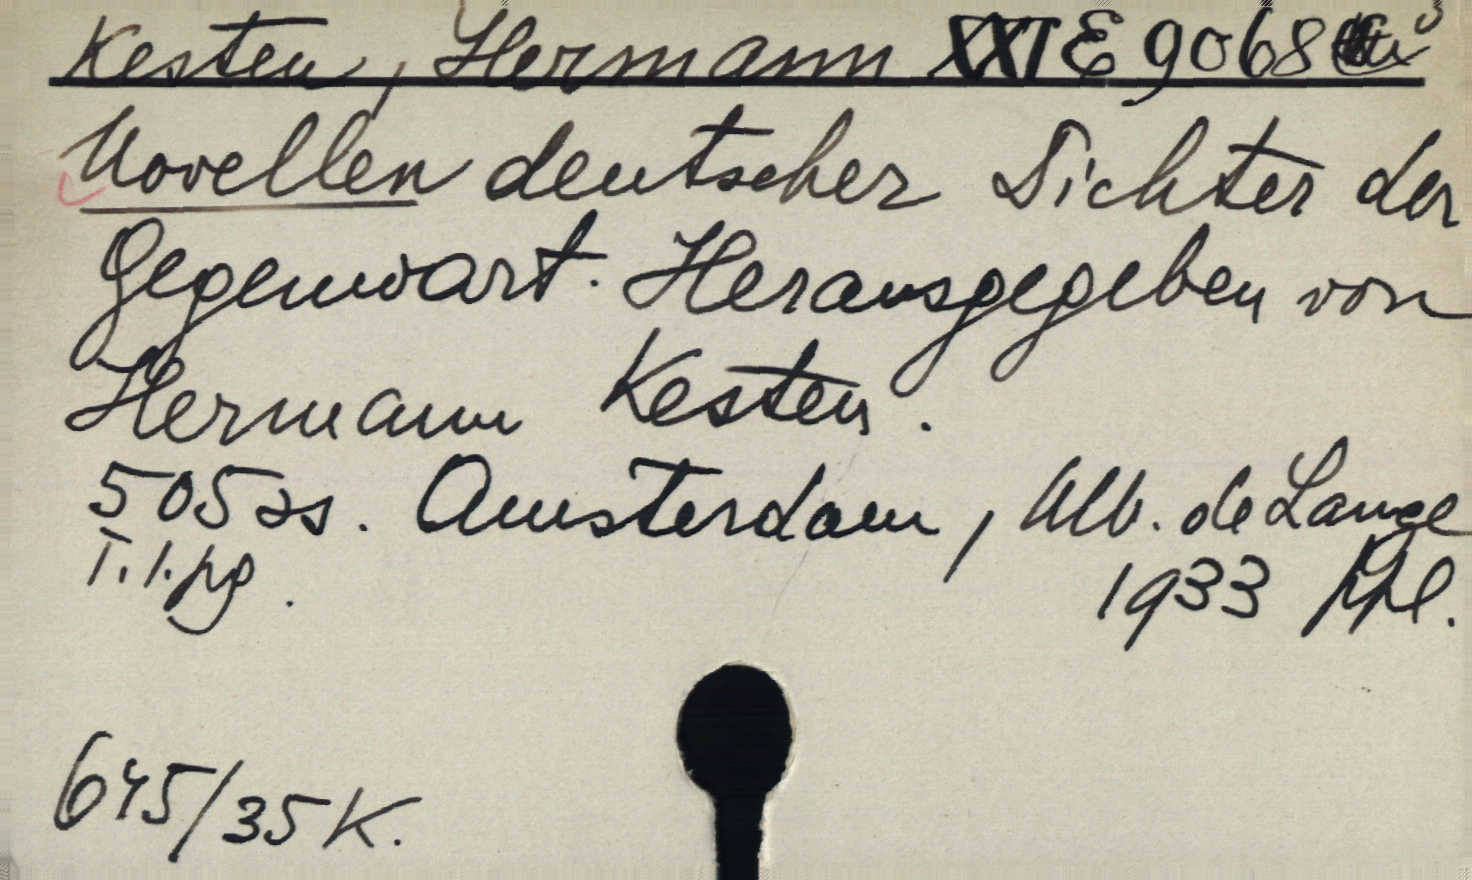 Kesten, Hermann XXI E 9068
Novellen deutscher Dichter der
Gegenwart. Herausgegeben von
Hermann Kesten.
505 ss. Amsterdam, Alb. de Lange
T. l. pg. 1933 ppl.
645/35 K.